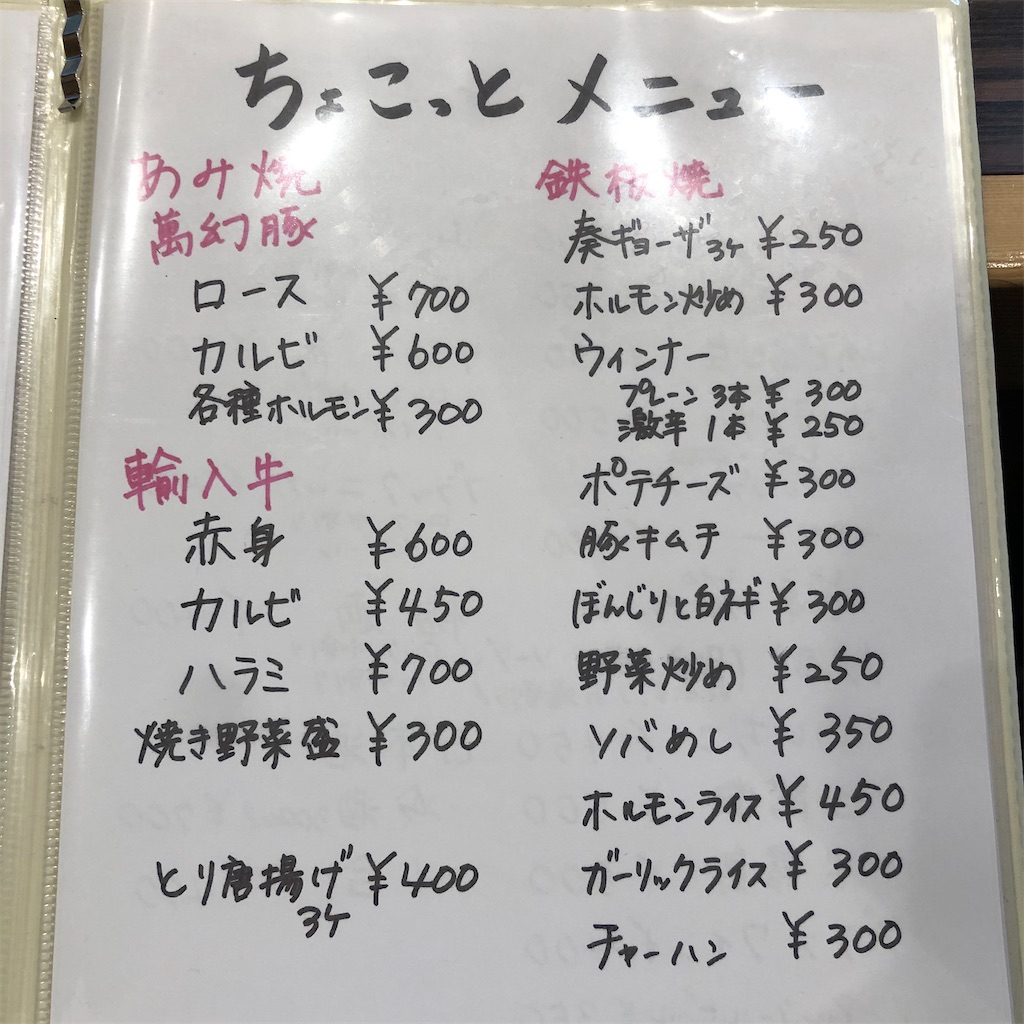 ちょこっとメニュー
あみ焼
萬幻豚
ロース ¥700
カルビ ¥600
各種ホルモン ¥300
輸入牛
赤身 ¥600
カルビ ¥450
ハラミ ¥700
焼き野菜盛 ¥300
とり唐揚げ ¥400
3ケ
鉄板焼
奏ギョーザ3ケ ¥250
ホルモン炒め ¥300
ウィンナー
プレーン 3本 ¥300
激辛 1本 ¥250
ポテチーズ ¥300
豚キムチ ¥300
ぼんじりと白ネギ ¥300
野菜炒め ¥250
ソバめし ¥350
ホルモンライス ¥450
ガーリックライス ¥300
チャーハン ¥300